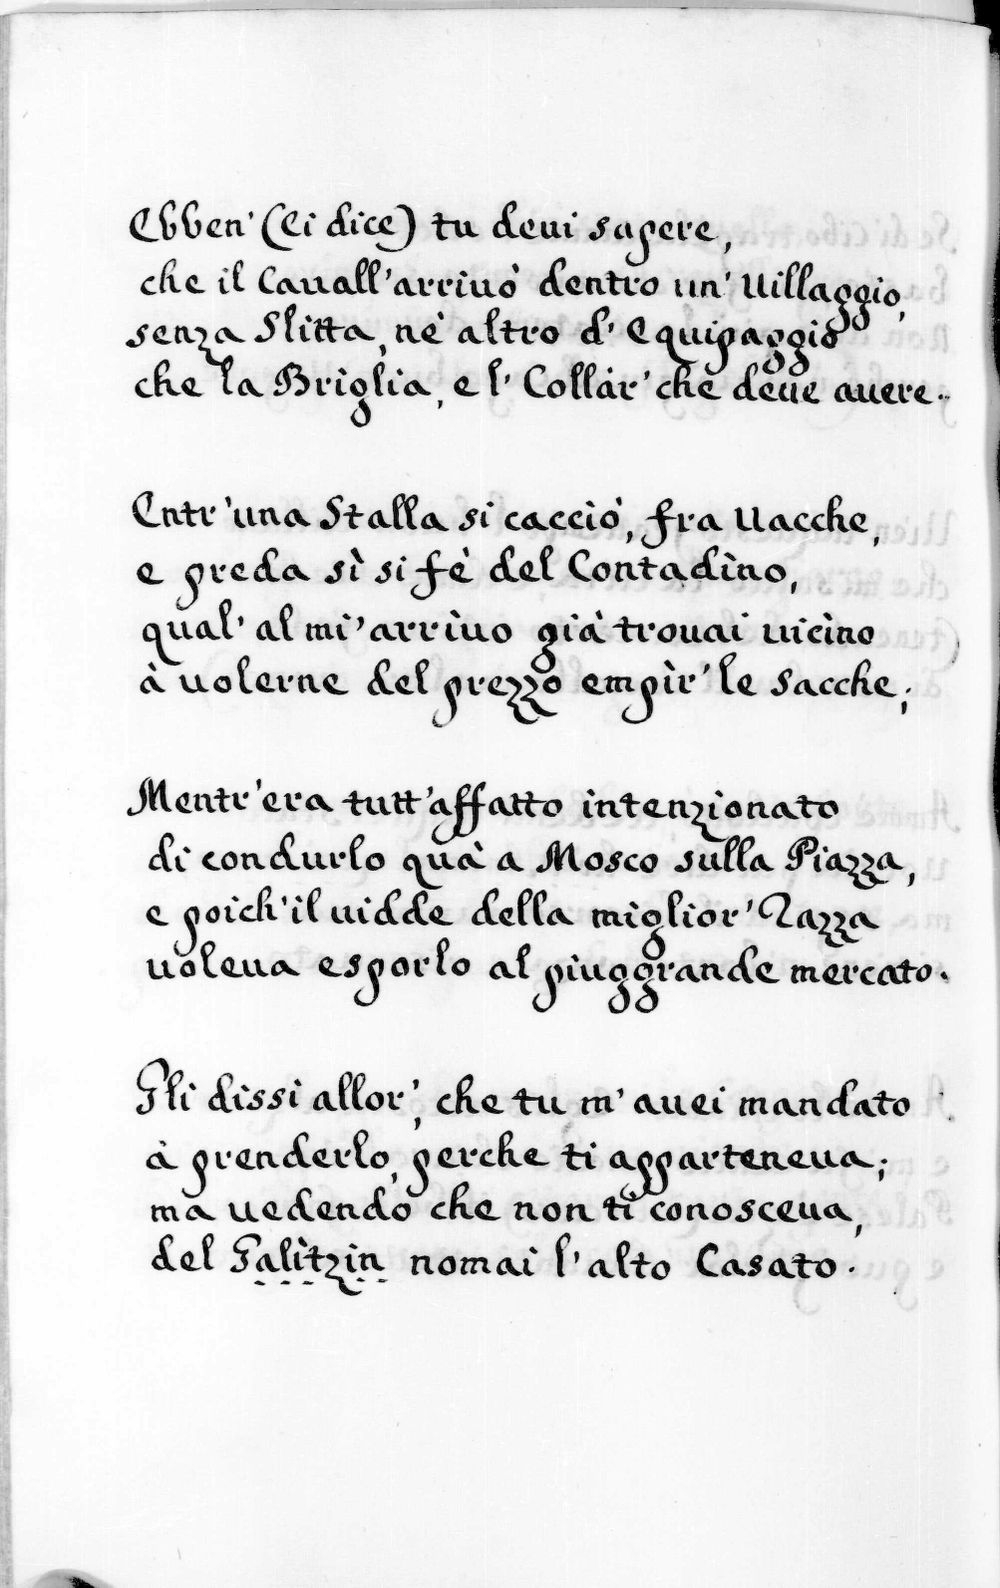 Ebben' (Ei dice) tu deui sapere,
che il Cauall'arriuò dentro un' Uillaggio,
senza Slitta, nè altro d' Equipaggio
che la Briglia, e l' Collàr' che deue auere.
Entr'una Stalla si cacciò, fra Uacche,
e preda sì si fè del Contadìno,
qual' al mi' arrìuo già trouai uicìno
à uolerne del prezzo empìr' le Sacche;
Mentr'era tutt'affatto intenzionato
di condurlo quà a Mosco sulla Piazza,
e poich'il uidde della miglior' Razza
uoleua esporlo al piuggrande mercato.
Gli dissi allor', che tu m' auei mandato
à prenderlo, perche ti apparteneua;
ma uedendo che non ti conosceua,
del Galìtzin nomai l' alto Casato.